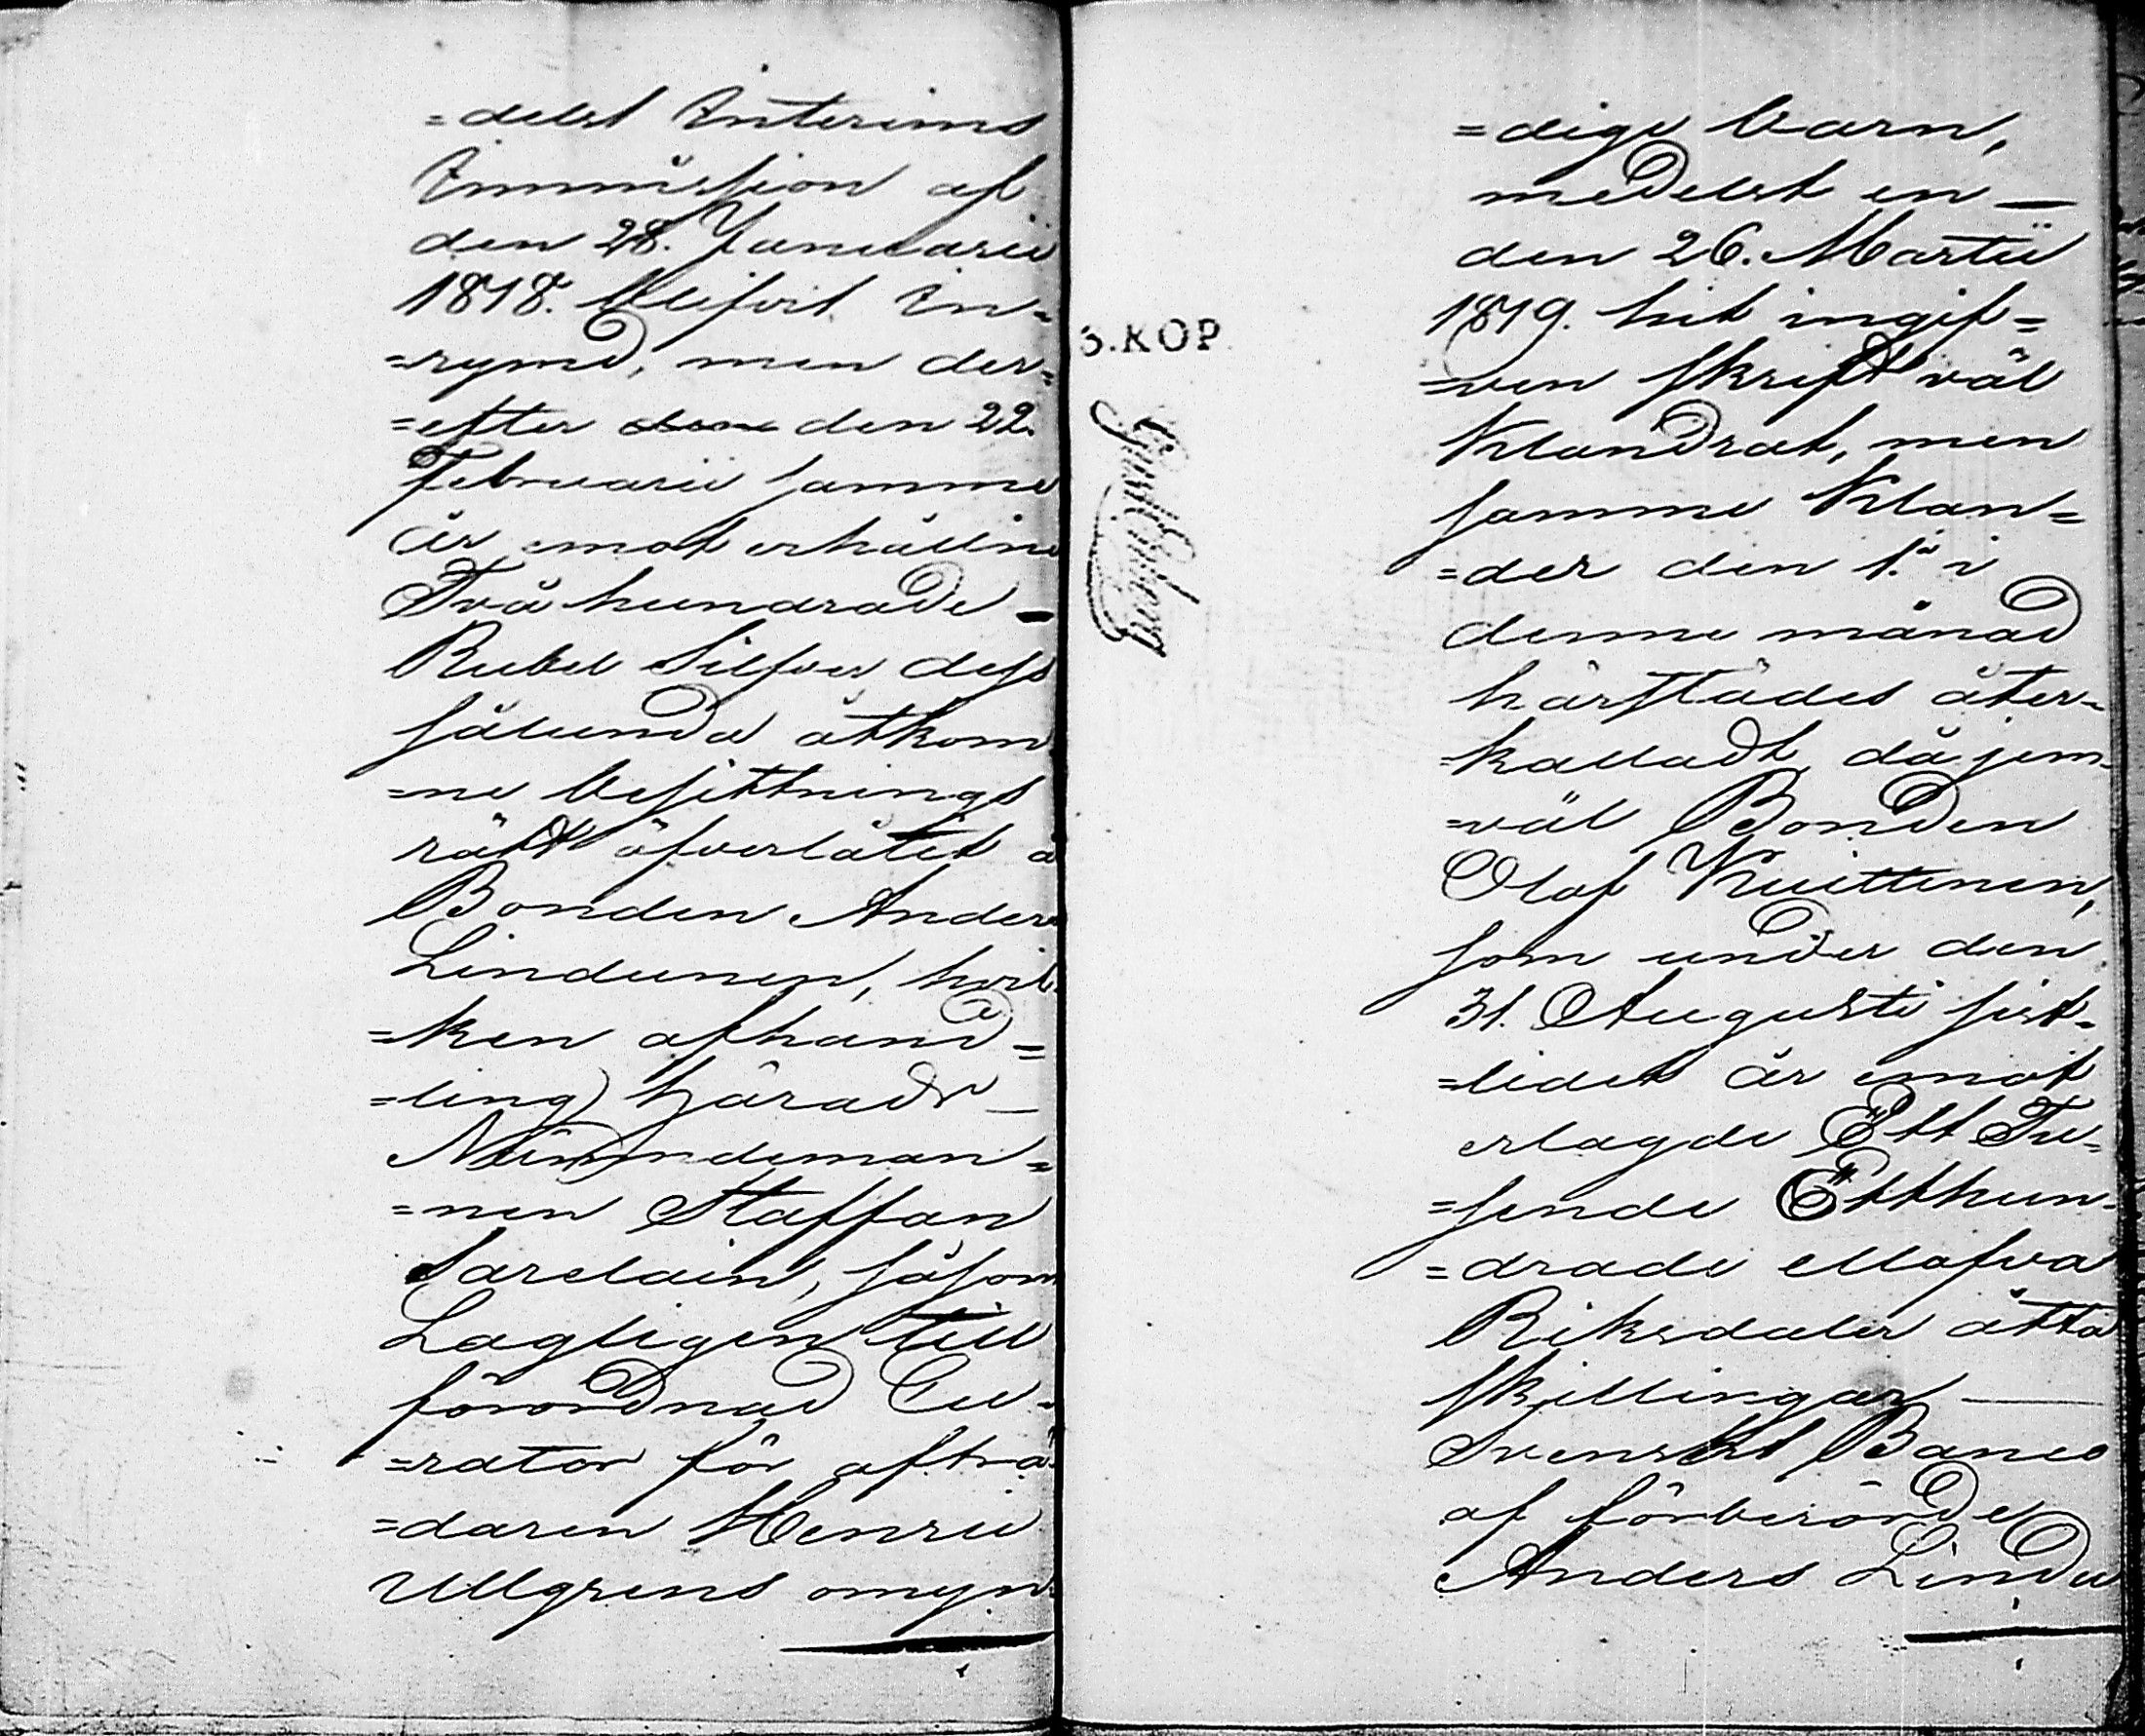 =delst Interims
Immission af
den 28. Januarii
1818. blifvit in=
=rymd, men der=
=efter den 22.
Februarii samma
år, emot erhållne
Två hundrade
Rubel Silfver dess
sålunda åtkom
=ne besittnings
rätt öfverlåtit å
Bonden Anders
Lindunen, hvil=
=ken afhand=
=ling härads
Nämndeman=
=nen Staffan
Sarelain, såsom
Lagligen till
förordnad Cu=
=rator för afträ=
=daren Henric
Ullgrens omyn=
3.KOP.
=dige barn,
medelst en
den 26. Martii
1819. hit ingif=
=ven skrift väl
Klandrat, men
samma Klan=
=der den 1. i
denne månad
härstädes åter=
=kalladt, då jem=
=väl Bonden
Olof Kuittinen,
som under den
31. Augusti sist=
=lidet år emot
erlagde Ett Tu=
=sende Etthun=
=drade ellofva
Riksdaler åtta
skillingar
Svenskt Banco
af förberörde
Anders Lindu